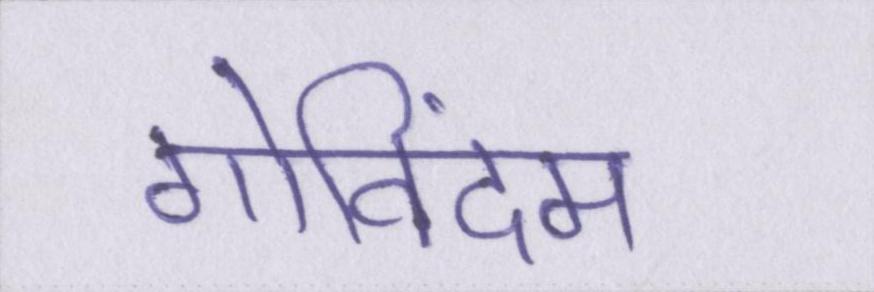 गोविंदम